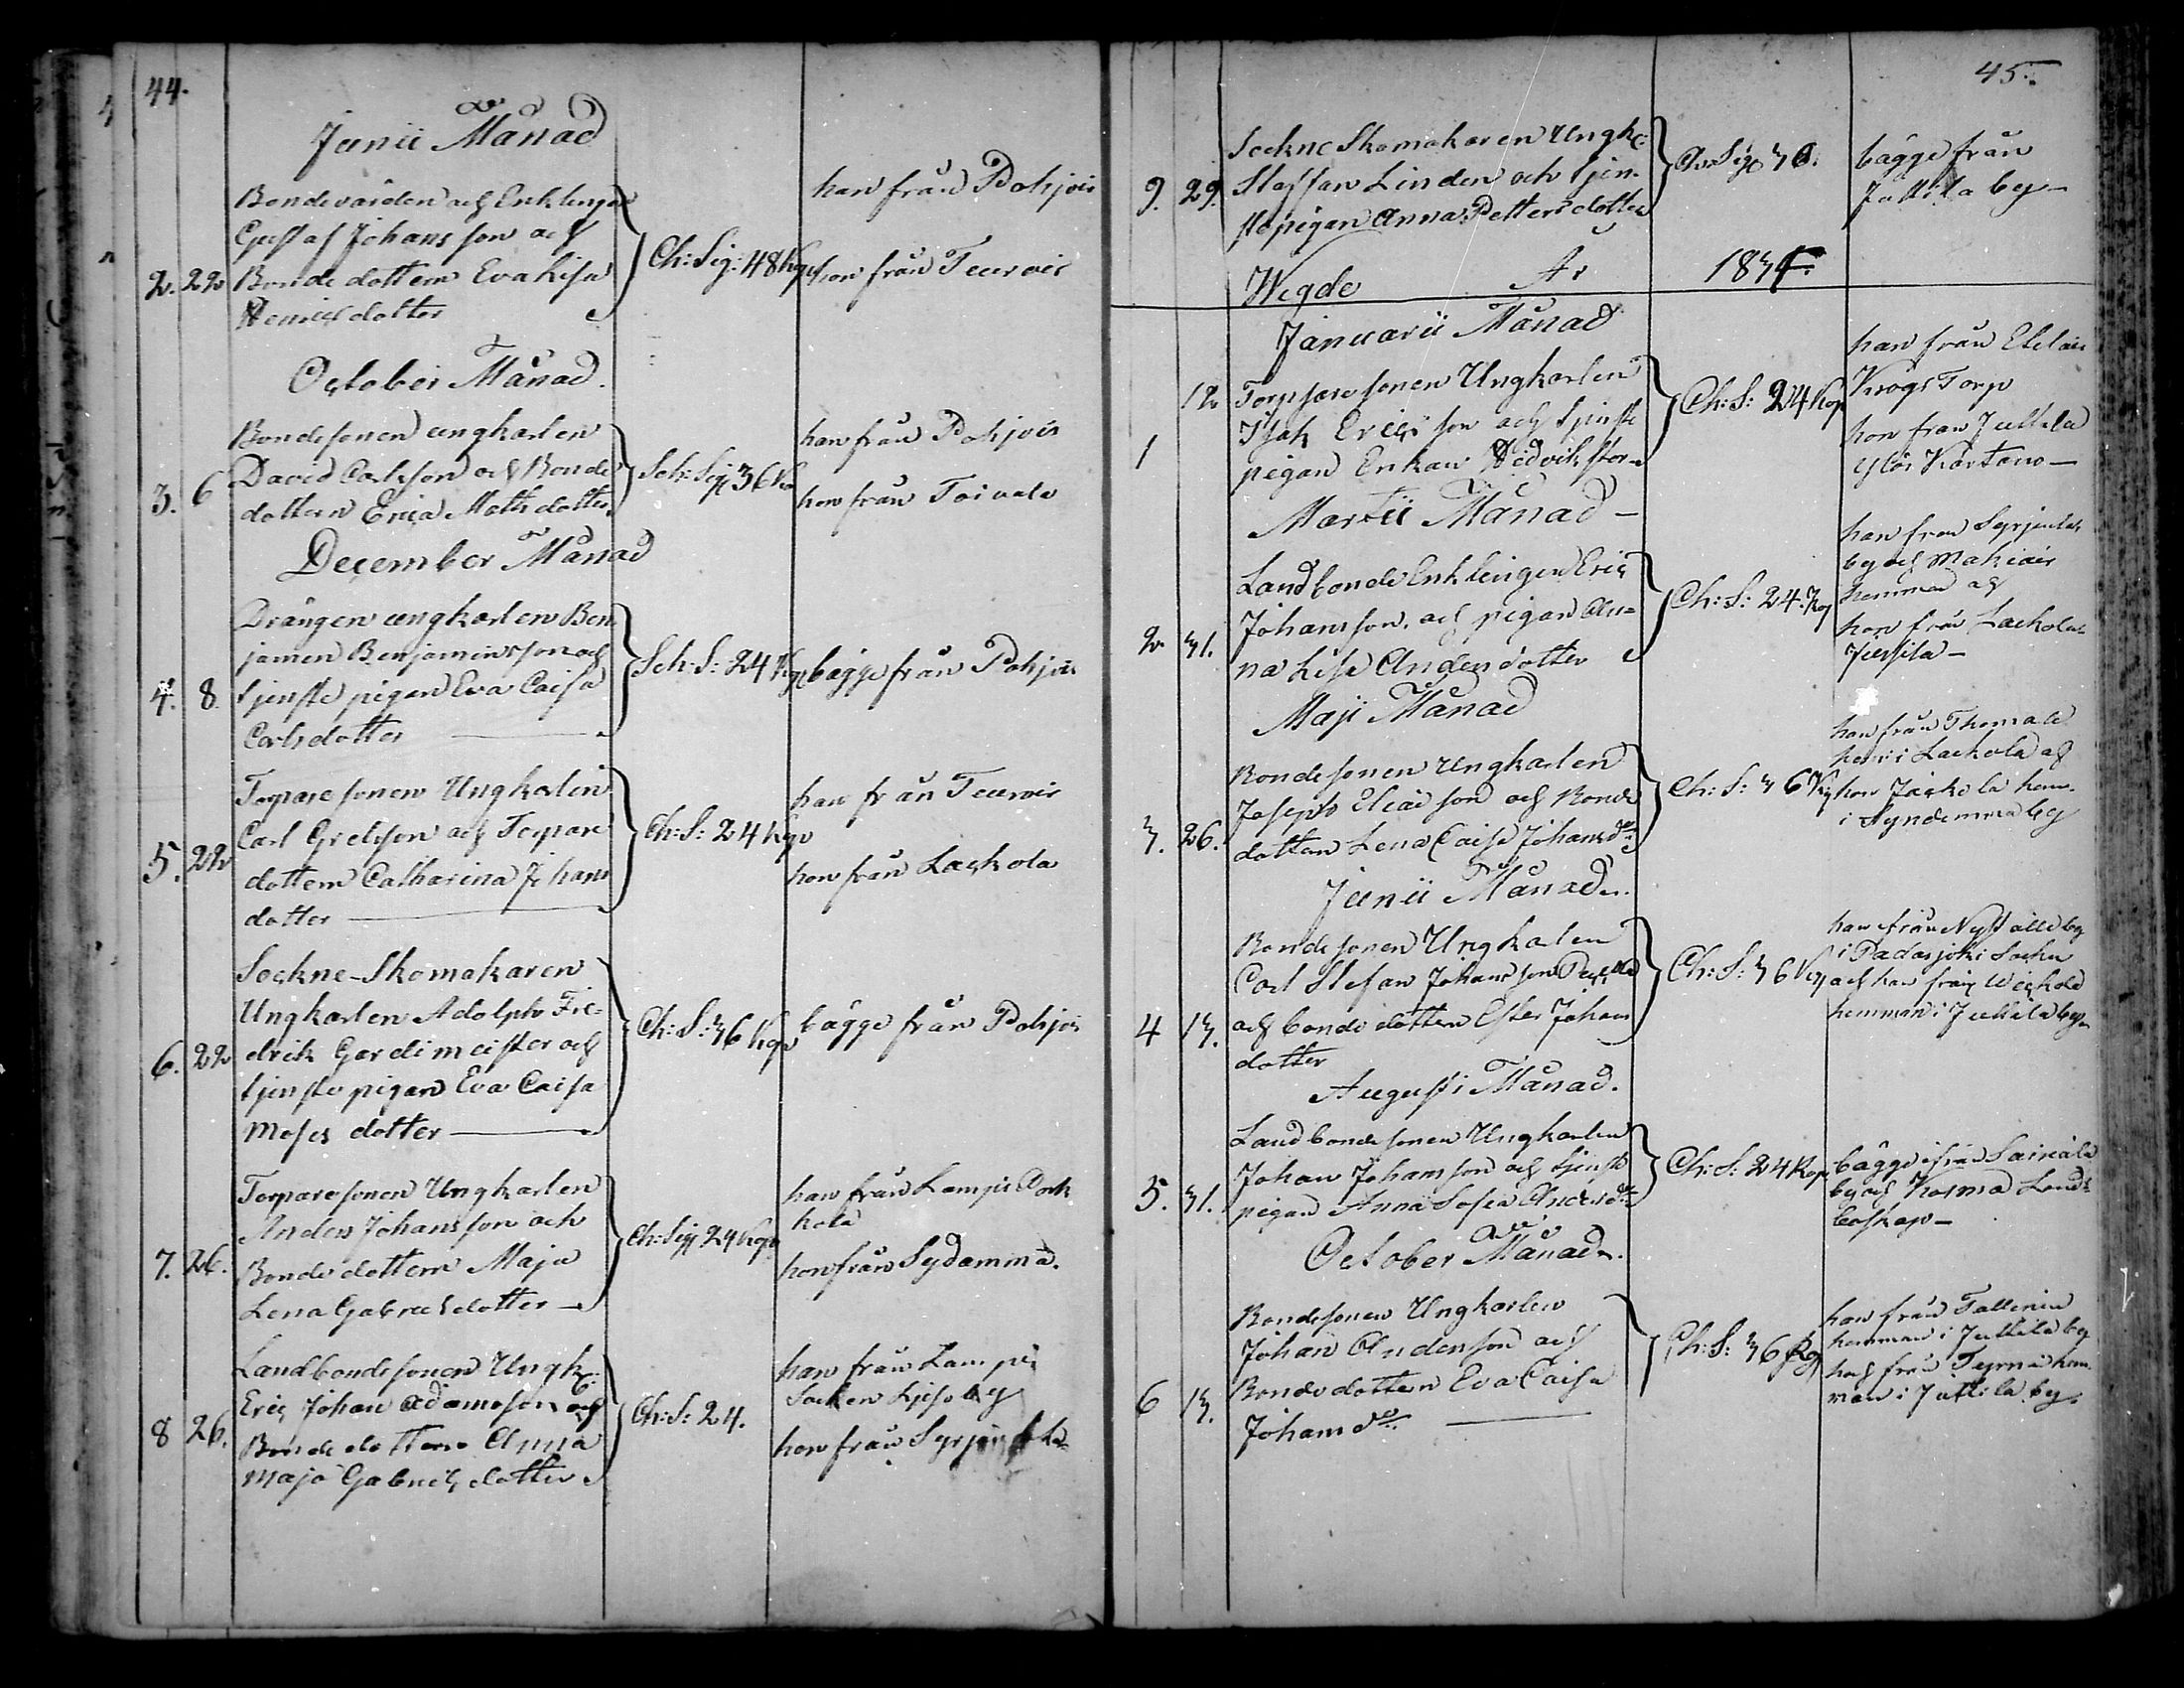 44.
Junii Månad
Bondevärden och Enklingen
Gustaf Johansson och
2. 22 Bonde dottern Eva Lisa
Henricsdotter
Ch: Sig: 48 Kop
han från Pohjois
hon från Teurois
October Månad.
Bondesonen ungkarlen
David Carlsson och Bonde
3. 6 dottern Erica Mathsdotter
Sch: Sig 36 Ko
han från Pohjois
hon från Toivala
December Månad
Drängen ungkarlen Ben
jamen Benjaminsson och
4. 8 tjenste pigan Eva Caisa
Carlsdotter
Sch: S: 24 Kop
bägge från Pohjois
Torpare sonen Ungkarlen
Carl Grelsson och Torpare
5. 22 dottern Catharina Johans
dotter
Ch: S: 24 Kop
han från Teurois
hon från Lackola
Sockne-Skomakaren
Ungkarlen Adolph Fre-
6. 22 drik Gardimeister och
tjenste pigan Eva Caisa
Moses dotter
Ch: S: 36 Kop
bägge från Pohjois
Torparesonen Ungkarlen
Anders Johansson och
7. 26. Bonde dottern Maja
Lena Gabrielsdotter
Ch: Sig 24 Kop
han från Lampis
kola
hon från Sydänmä.
Landbondesonen Ungk:
Eric Johan Adamsson och
8 26. Bonde dottern Anna
Maja Gabriels dotter
Ch: S: 24.
han från Lampis
Socken by
hon från
45.
Sockne Skomakaren Ungk:
9. 29. Staffan Linden och tjen-
stepigan Anna Petters dotter
Ch: Sig 36.
bägge från
Juttila by
Wigde År 1834.
Januarii Månad
12 Torpare sonen Ungkarlen
Isak Ericsson och tjenste
1 pigan Enkan Hedvik
Ch: S: 24 Kop
han från Eteläis
Krogs Torp
hon från Juttila
Ylös Kartano
Martii Månad
Landbonde Enklingen Eric
Johansson. och pigan An-
2 31. na Lisa Andersdotter
Ch: S: 24. Kop
han från Syrjentak
by och Makiais
hemman och
hon från Lackola
Jussila
Maji Månad
Bondesonen Ungkarlen
Joseph Eliasson och Bonde
3. 26. dottern Lena Caisa Johansdr
Ch: S: 36 Kop
han från Thomala
hem i Lackola och
hon Jäskelä hem.
i Syndenmä by
Junii Månad.
Bondesonen Ungkarlen
Carl Stefan Johansson
4 13. och bonde dottern Ester Johans
dotter
Ch: S: 36 Kop
han från Nystölä by
i Padasjoki Sockn
och hon från Weckola
hemman i Juttila by
Augusti Månad.
Landbondesonen Ungkarlen
Johan Johansson och tjenste
5. 31. pigan Anna Sofia Andersdr
Ch: S: 24 Kop
bägge ifrån Sairiala
by och Kosma Land
boskap
October Månad.
Bondesonen Ungkarlen
Johan Andersson och
6 13. Bonde dottern Eva Caisa
Johansdr
Ch: S: 36 Kop
han från Tallenin
hemman i Juttila by
hon från Teyrnä hem
man i Juttila by.